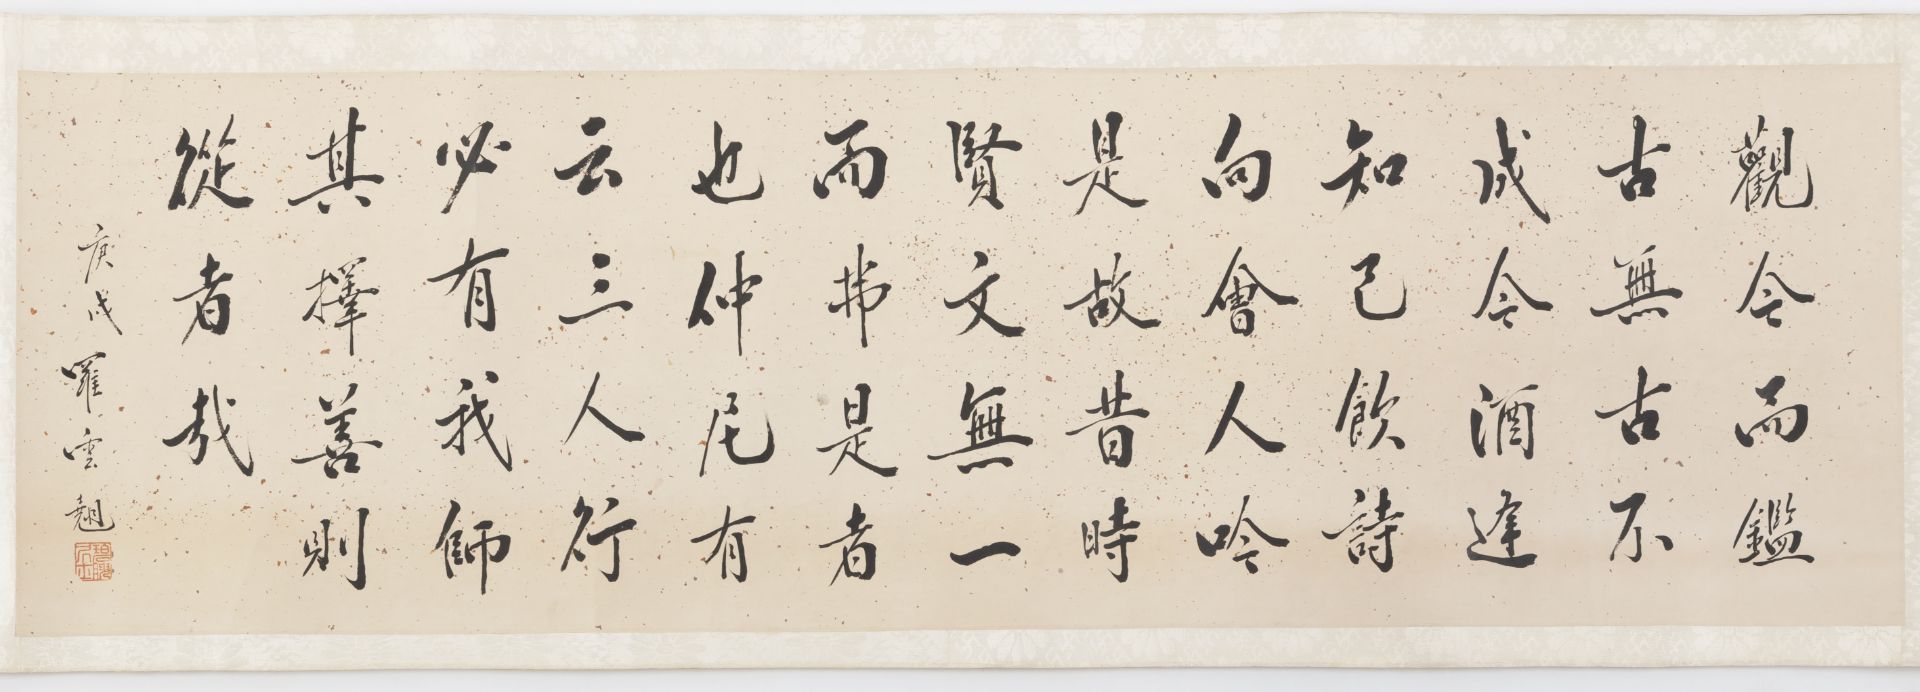 觀今而鑑
古無古不
成今酒逢
知己飲詩
向會人吟
是故昔時
賢文無一
而弗是者
也仲尼有
云三人行
必有我師
其擇善則
從者哉
庚戌羅雲翹